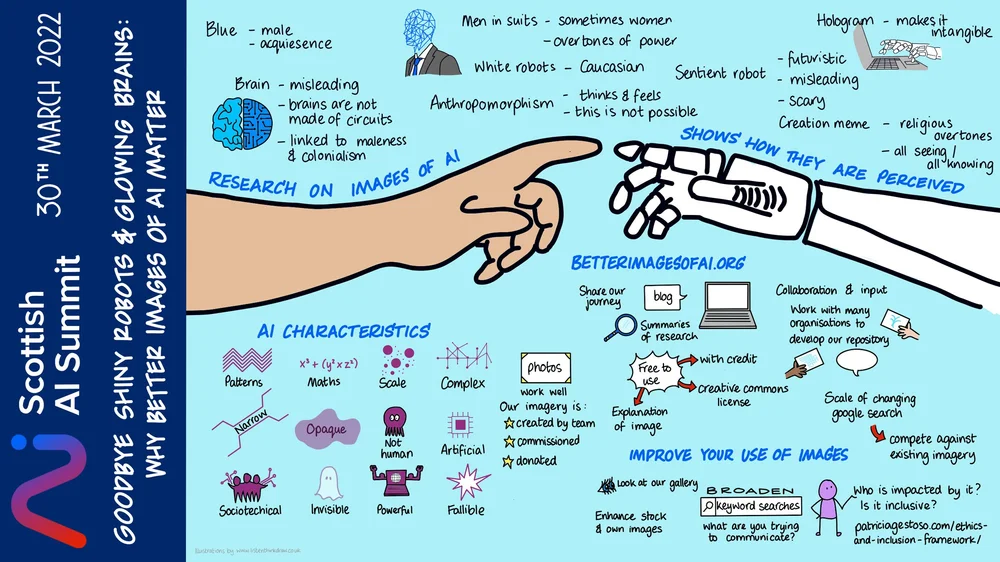 Scottish
AI Summit
30TH MARCH 2022
GOODBYE SHINY ROBOTS & GLOWING BRAINS:
WHY BETTER IMAGES OF AI MATTER
Blue - male
- acquiesence
Brain - misleading
- brains are not
made of circuits
- linked to maleness
& colonialism
Men in suits - sometimes women
- overtones of power
White robots - Caucasian
Anthropomorphism - thinks & feels
- this is not possible
Sentient robot - futuristic
- misleading
- scary
Hologram - makes it
intangible
Creation meme - religious
overtones
- all seeing /
all knowing
RESEARCH ON IMAGES OF AI
SHOWS HOW THEY ARE PERCEIVED
AI CHARACTERISTICS
Patterns
x³ + (y² x z²)
Maths
Scale
Complex
Narrow
Opaque
Not
human
Artificial
Sociotechical
Invisible
Powerful
Fallible
photos
work well
Our imagery is:
created by team
commissioned
donated
BETTERIMAGESOFAI.ORG
Share our
journey
blog
Summaries
of research
Free to
use
with credit
creative commons
license
Explanation
of image
Collaboration & input
Work with many
organisations to
develop our repository
Scale of changing
google search
compete against
existing imagery
IMPROVE YOUR USE OF IMAGES
Look at our gallery
Enhance stock
& own images
BROADEN
keyword searches
what are you trying
to communicate?
Who is impacted by it?
Is it inclusive?
patriciagestoso.com/ethics-
and-inclusion-framework/